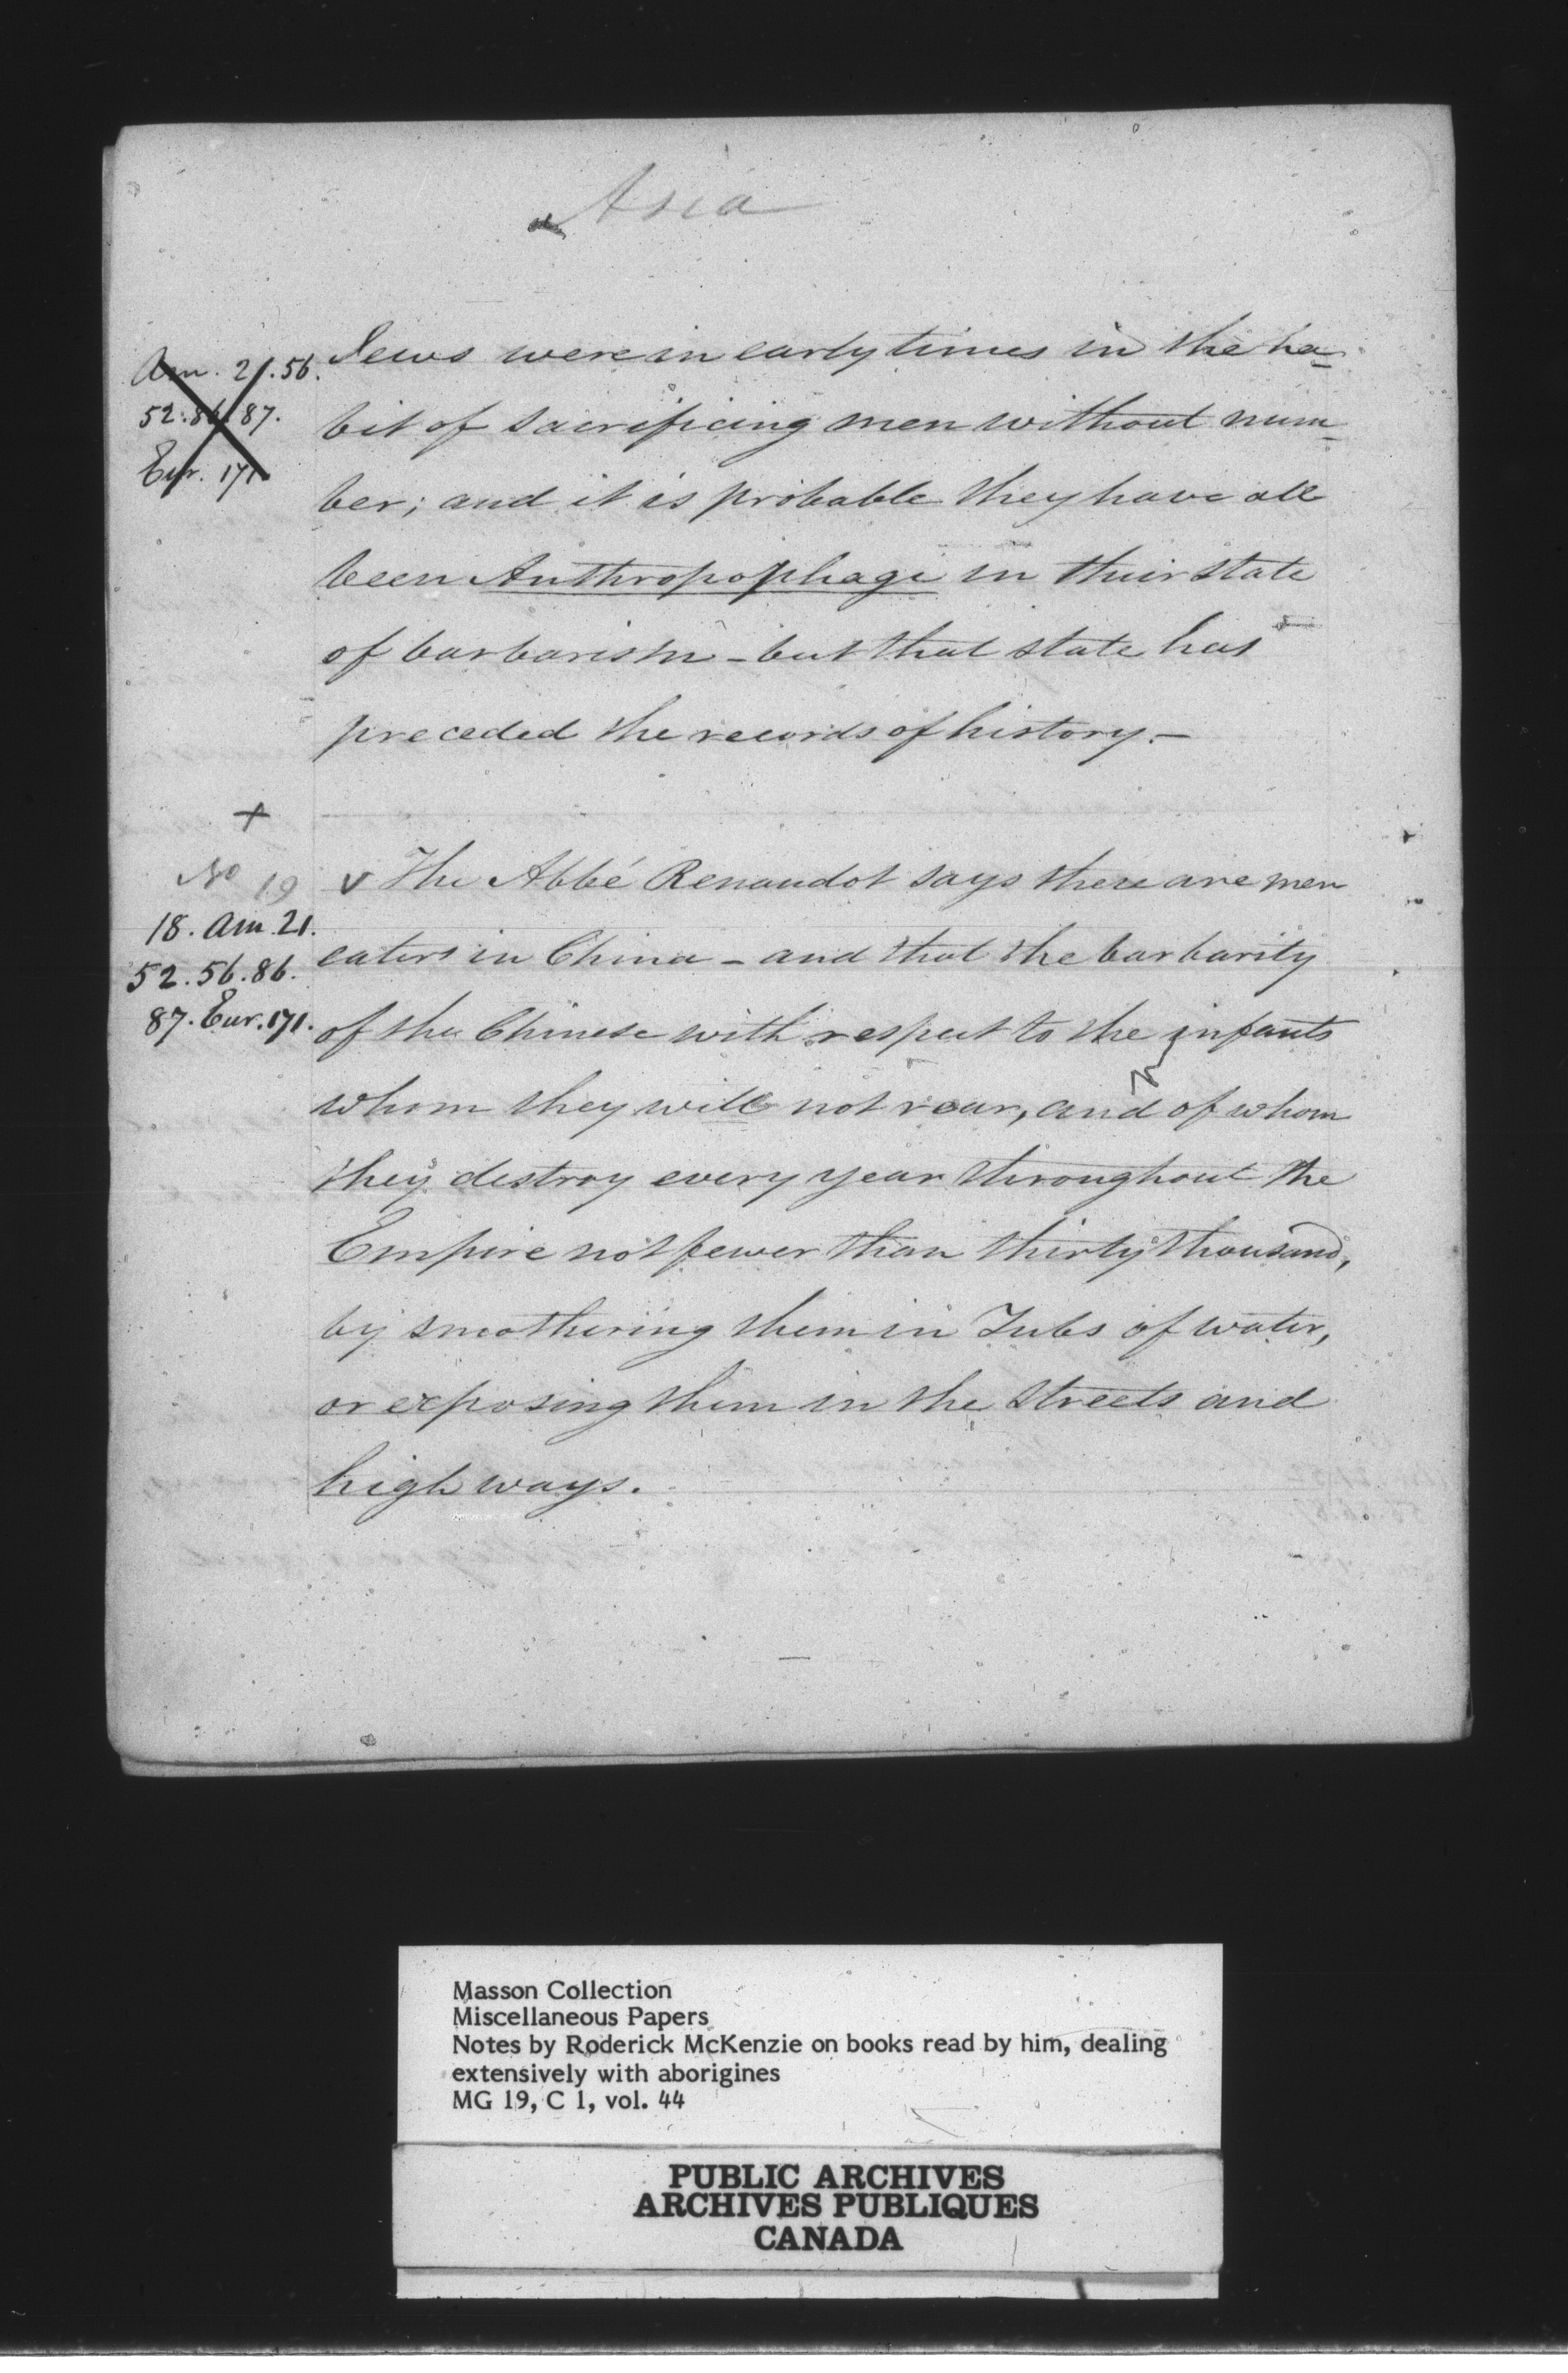 Asia
Am. 21.56.
52.86.87.
Eur. 171
Jews were in early times in the ha-
bit of sacrificing men without num-
ber; and it is probable they have all
been Anthropophagi in their state
of barbarism - but that state has
preceded the records of history. -
+
No 19
18. Am 21.
52. 56. 86.
87. Eur. 171.
v The Abbé Renaudot says there are men
eaters in China - and that the barbarity
of the Chinese with respect to the infants
whom they will not rear, and of whom
they destroy every year throughout the
Empire not fewer than thirty thousand,
by smothering them in Tubs of water,
or exposing them in the streets and
high ways.
Masson Collection
Miscellaneous Papers
Notes by Roderick McKenzie on books read by him, dealing
extensively with aborigines
MG 19, C 1, vol. 44
PUBLIC ARCHIVES
ARCHIVES PUBLIQUES
CANADA